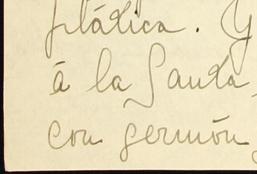 plática. Y
á la Santa
con sermón